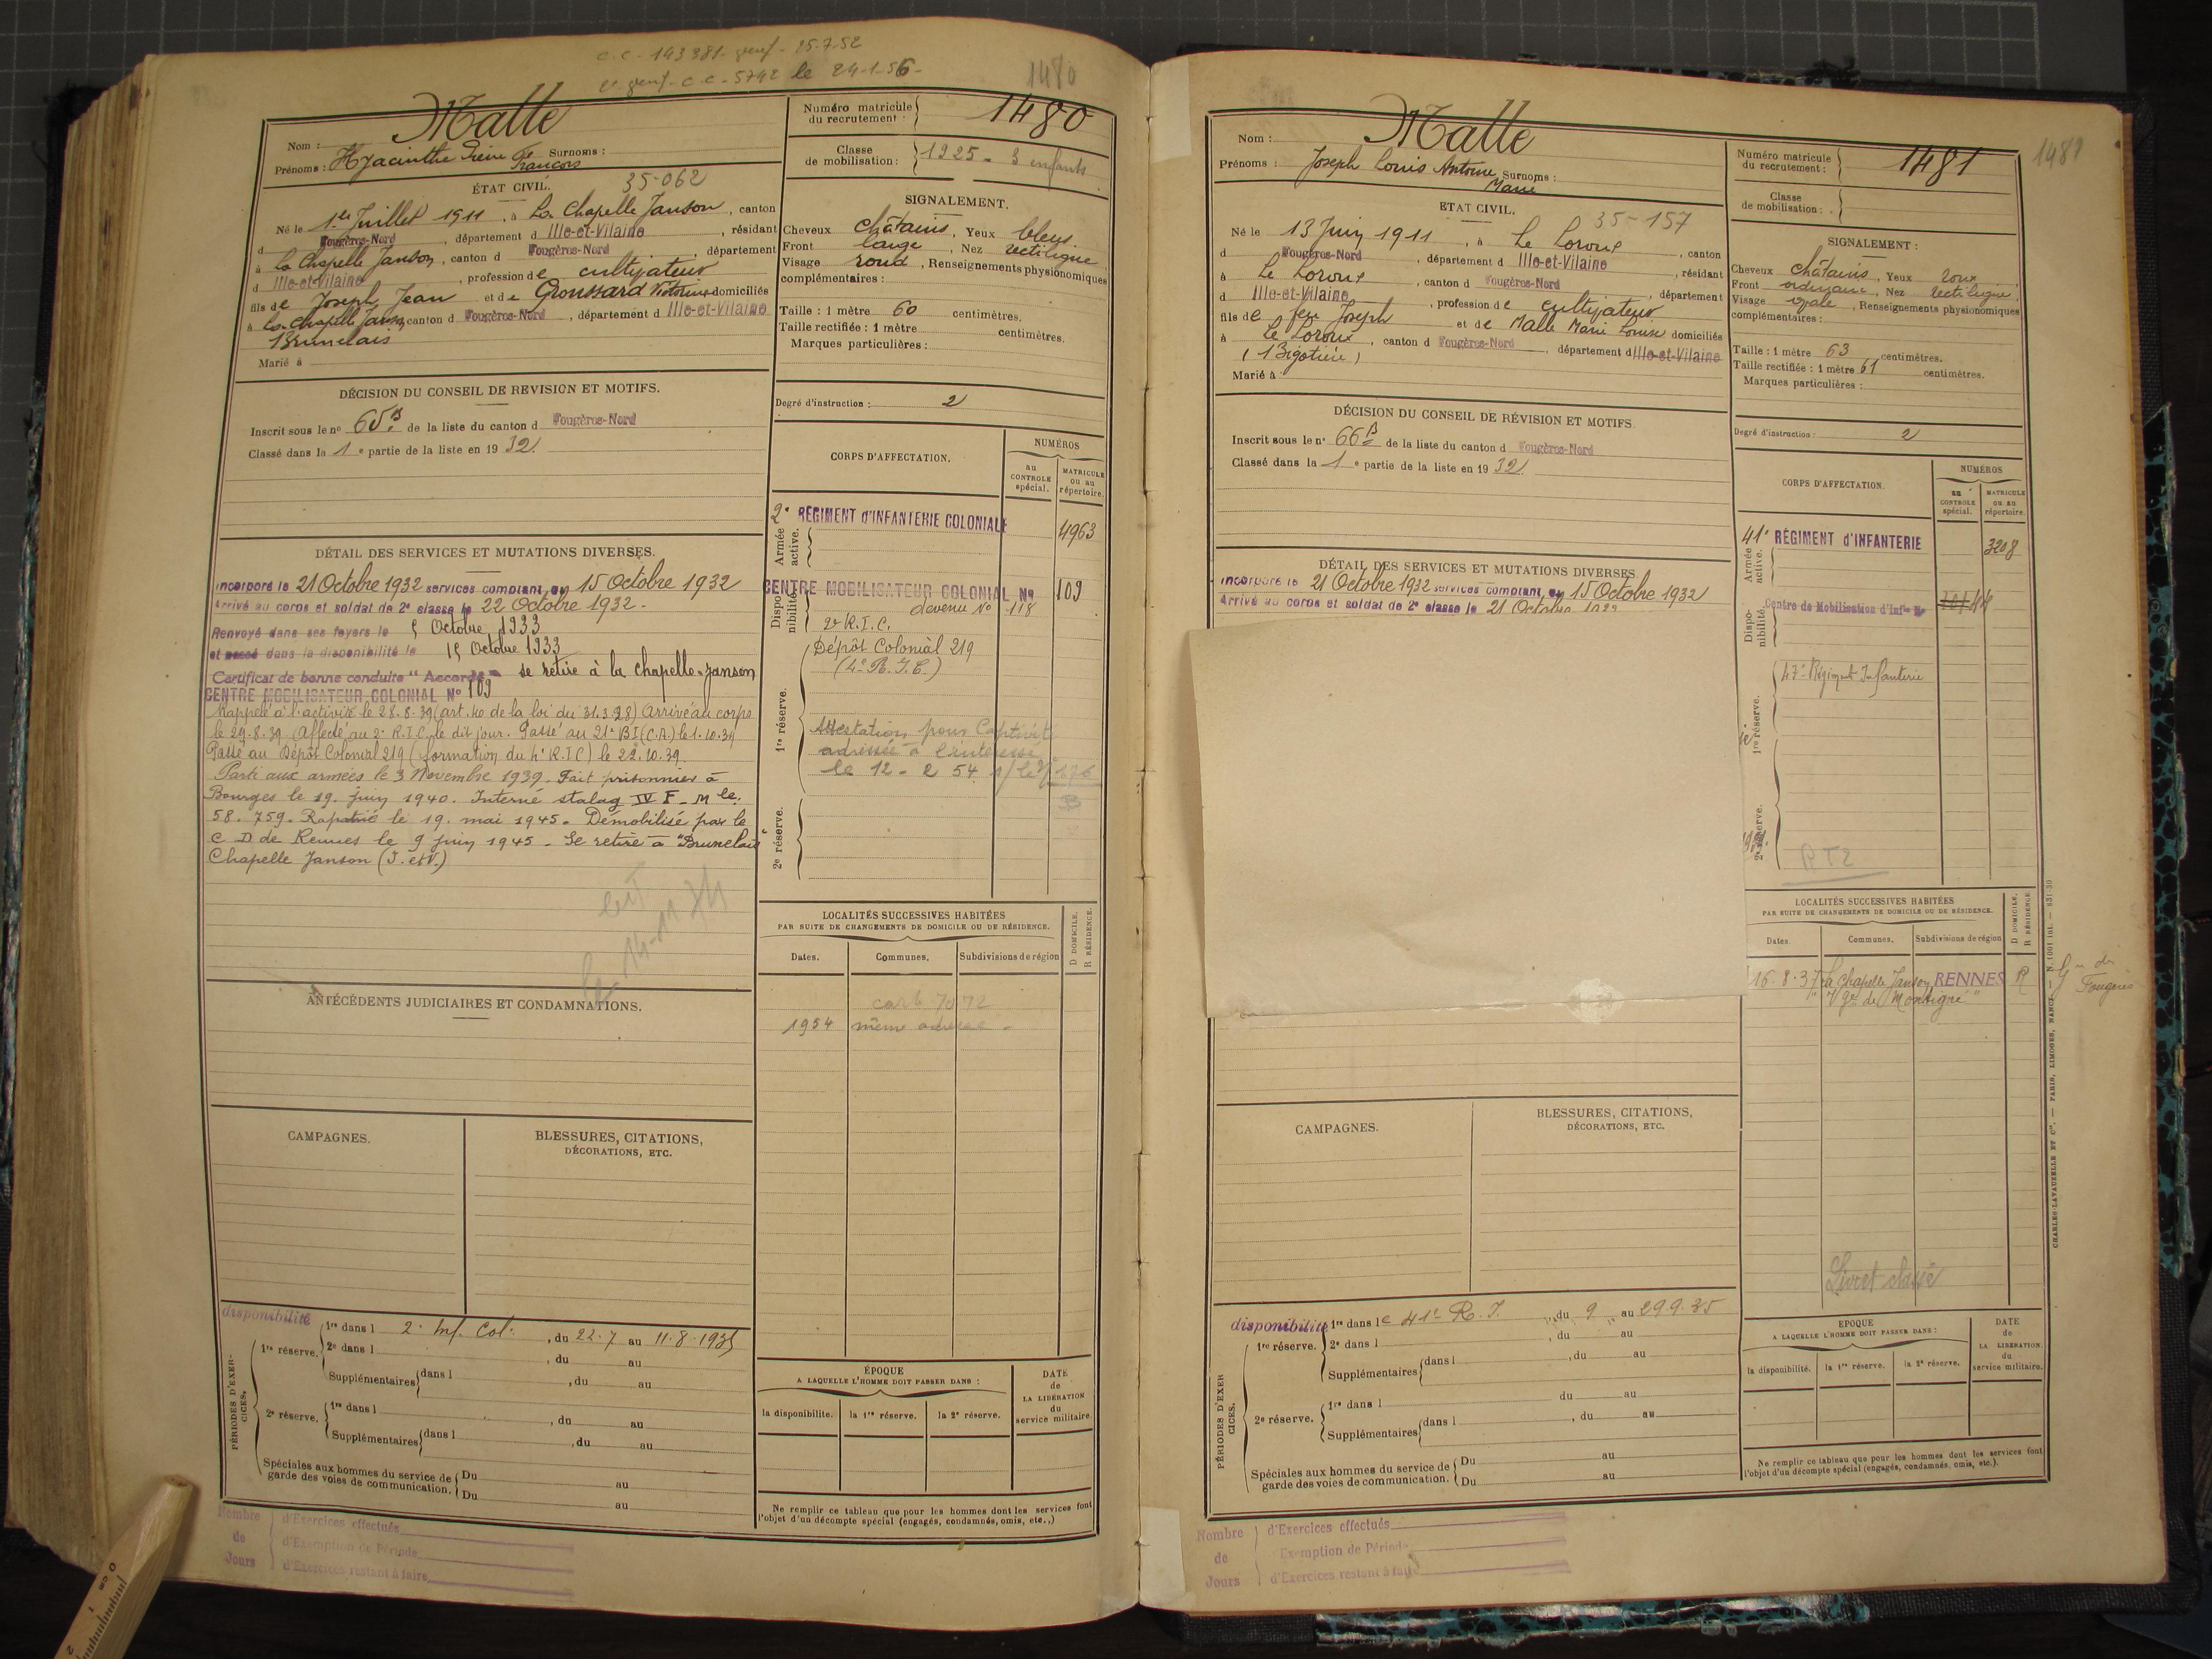 C.C. 143381 - 25.7.52
C.C. 5742 le 24-1-56-
1480
Nom : Malle
Prénoms : Hyacinthe Pierre François Surnoms :
Numéro matricule du recrutement : 1480
Classe de mobilisation : 1925 - 3 enfants
ÉTAT CIVIL. 35-062
Né le 1er Juillet 1911, à La Chapelle Janson, canton
d Fougères-Nord, département d Ille-et-Vilaine, résidant
à La Chapelle Janson, canton d Fougères-Nord, département
d Ille-et-Vilaine, profession de cultivateur
fils de Joseph Jean et de Groussard Victorine domiciliés
à La Chapelle Janson, canton d Fougères-Nord, département d Ille-et-Vilaine
Brunelais
Marié à
SIGNALEMENT.
Cheveux châtains, Yeux bleus.
Front large, Nez rectiligne
Visage rond, Renseignements physionomiques
complémentaires :
Taille : 1 mètre 60 centimètres.
Taille rectifiée : 1 mètre centimètres.
Marques particulières :
Degré d'instruction : 2
DÉCISION DU CONSEIL DE REVISION ET MOTIFS.
Inscrit sous le nº 65 B de la liste du canton d Fougères-Nord
Classé dans la 1e partie de la liste en 1932.
CORPS D'AFFECTATION.
NUMÉROS
au CONTROLE spécial.
MATRICULE ou au répertoire.
Armée active.
2e RÉGIMENT d'INFANTERIE COLONIALE 4963
Disponibilité.
CENTRE MOBILISATEUR COLONIAL Nº 109
devenu Nº 118
2e R.I.C.
1re réserve.
Dépôt Colonial 219
(4e R.I.C.)
Attestation pour Captivité
adressée à l'intéressé
le 12-2 54
2e réserve.
DÉTAIL DES SERVICES ET MUTATIONS DIVERSES.
Incorporé le 21 Octobre 1932 services comptant du 15 Octobre 1932
Arrivé au corps et soldat de 2e classe le 22 Octobre 1932.
Renvoyé dans ses foyers le 5 Octobre 1933
et passé dans la disponibilité le 15 Octobre 1933
Certificat de bonne conduite "Accordé" se retire à la Chapelle-Janson
CENTRE MOBILISATEUR COLONIAL Nº 109
Rappelé à l'activité le 28.8.39 (art. 40 de la loi du 31.3.28) Arrivé au corps
le 29.8.39. Affecté au 2e R.I.C. le dit jour. Passé au 21e BI (C.A.) le 1.10.39
Passé au Dépôt Colonial 219 (formation du 4e R.I.C) le 22.10.39.
Parti aux armées le 3 Novembre 1939. Fait prisonnier à
Bourges le 19 juin 1940. Interné stalag IV F - Mle
58.759. Rapatrié le 19 mai 1945. Démobilisé par le
C D de Rennes le 9 juin 1945. Se retire à "Brunelais"
Chapelle Janson (I. et V.)
le 14-11
LOCALITÉS SUCCESSIVES HABITÉES
PAR SUITE DE CHANGEMENTS DE DOMICILE OU DE RÉSIDENCE.
D DOMICILE.
R RÉSIDENCE.
Dates. Communes. Subdivisions de région
1954 même adresse -
ANTÉCÉDENTS JUDICIAIRES ET CONDAMNATIONS.
CAMPAGNES.
BLESSURES, CITATIONS,
DÉCORATIONS, ETC.
PÉRIODES D'EXERCICES.
disponibilité
1re réserve. 1re dans l 2e Inf. Col., du 22.7 au 11.8.1935
2e dans l , du au
Supplémentaires dans l , du au
2e réserve. 1re dans l , du au
Supplémentaires dans l , du au
Spéciales aux hommes du service de Du au
garde des voies de communication. Du au
ÉPOQUE
A LAQUELLE L'HOMME DOIT PASSER DANS :
la disponibilité. la 1re réserve. la 2e réserve.
DATE de LA LIBÉRATION du service militaire.
Ne remplir ce tableau que pour les hommes dont les services font
l'objet d'un décompte spécial (engagés, condamnés, omis, etc.,)
Nombre de Jours
d'Exercices effectués
d'Exemption de Période
d'Exercices restant à faire
1481
Nom : Malle
Prénoms : Joseph Louis Antoine Marie Surnoms :
Numéro matricule du recrutement : 1481
Classe de mobilisation :
ETAT CIVIL. 35-157
Né le 13 Juin 1911, à Le Loroux, canton
d Fougères-Nord, département d Ille-et-Vilaine, résidant
à Le Loroux, canton d Fougères-Nord, département
d Ille-et-Vilaine, profession de cultivateur
fils de feu Joseph et de Malle Marie Louise domiciliés
à Le Loroux, canton d Fougères-Nord, département d Ille-et-Vilaine
(Bigotière)
Marié à
SIGNALEMENT :
Cheveux châtains, Yeux roux
Front ordinaire, Nez rectiligne
Visage ovale, Renseignements physionomiques
complémentaires :
Taille : 1 mètre 63 centimètres.
Taille rectifiée : 1 mètre 61 centimètres.
Marques particulières :
Degré d'instruction : 2
DÉCISION DU CONSEIL DE RÉVISION ET MOTIFS.
Inscrit sous le nº 66 B de la liste du canton d Fougères-Nord
Classé dans la 1e partie de la liste en 1932.
CORPS D'AFFECTATION.
NUMÉROS
au CONTROLE spécial.
MATRICULE ou au répertoire.
Armée active.
41e RÉGIMENT d'INFANTERIE 3208
Disponibilité.
Centre de Mobilisation d'Infie Nº
1re réserve.
47e Régiment Infanterie
2e réserve.
DÉTAIL DES SERVICES ET MUTATIONS DIVERSES
Incorporé le 21 Octobre 1932 services comptant du 15 Octobre 1932
Arrivé au corps et soldat de 2e classe le 21 Octobre 1932
LOCALITÉS SUCCESSIVES HABITÉES
PAR SUITE DE CHANGEMENTS DE DOMICILE OU DE RÉSIDENCE.
D DOMICILE.
R RÉSIDENCE
Dates. Communes. Subdivisions de région
16.8.37 La Chapelle Janson RENNES R
de Montigné"
Gie de Fougères
Livret classé
CAMPAGNES.
BLESSURES, CITATIONS,
DÉCORATIONS, ETC.
PÉRIODES D'EXERCICES.
disponibilité
1re réserve. 1re dans le 41e R.I. du 9 au 29.9.35
2e dans l , du au
Supplémentaires dans l , du au
2e réserve. 1re dans l du au
Supplémentaires dans l , du au
Spéciales aux hommes du service de Du au
garde des voies de communication. Du au
EPOQUE
A LAQUELLE L'HOMME DOIT PASSER DANS :
la disponibilité. la 1re réserve. la 2e réserve.
DATE de LA LIBÉRATION du service militaire.
Ne remplir ce tableau que pour les hommes dont les services font
l'objet d'un décompte spécial (engagés, condamnés, omis, etc.).
CHARLES-LAVAUZELLE ET Cie. — PARIS, LIMOGES, NANCY — N. 1001 int. — 831-30
Nombre de Jours
d'Exercices effectués
Exemption de Période
d'Exercices restant à faire